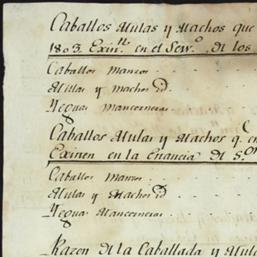 Caballos Mulas y Machos que
1803. Exin.n en el Serv.o de los
Caballos Manzos
Mulas y Machos id.
Yeguas Mancorneras
Caballos Mulas y Machos q.e en
Existen en la Estancia de S.or
Caballos Manzos
Mulas y Machos id.
Yeguas Mancorneras
Razon de la Caballada y Mula